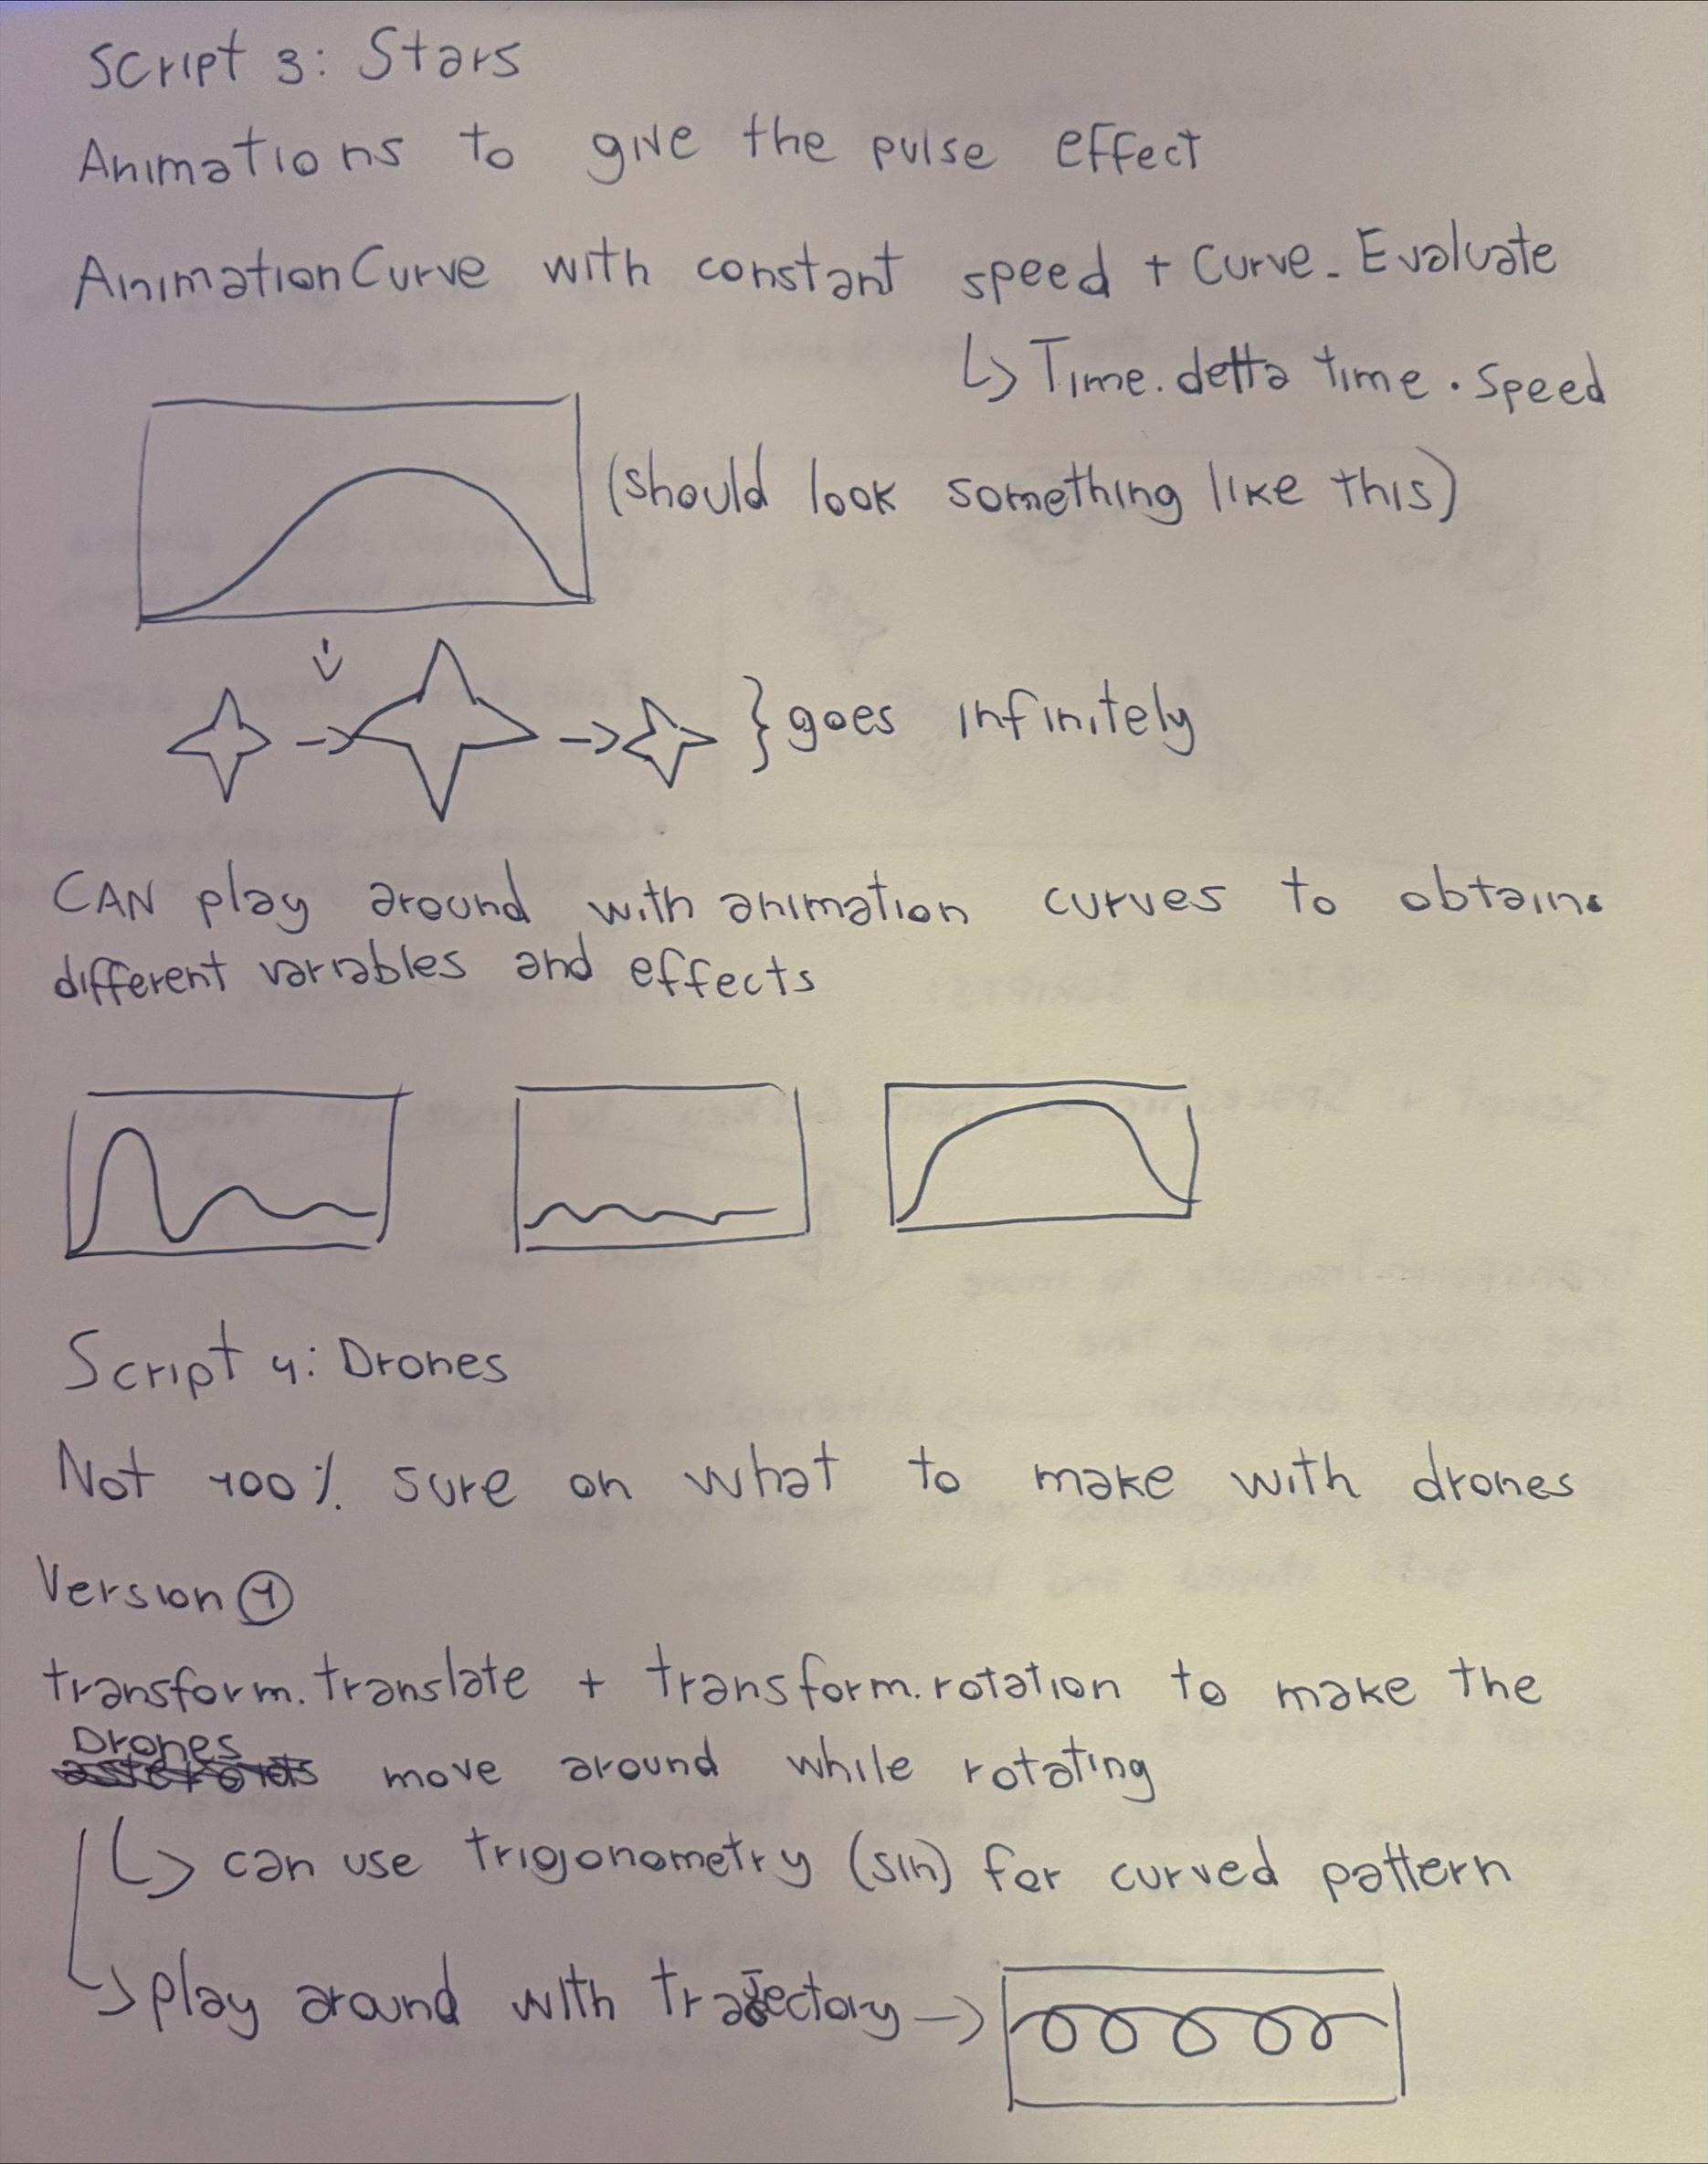 Script 3: Stars
Animations to give the pulse effect
AnimationCurve with constant speed + Curve. Evaluate
↳ Time.delta time . speed
(should look something like this)
} goes infinitely
CAN play around with animation curves to obtain
different variables and effects
Script 4: Drones
Not 100% sure on what to make with drones
Version 1
transform.translate + transform.rotation to make the
Drones
asteroids move around while rotating
↳ can use trigonometry (sin) for curved pattern
↳ play around with trajectory →